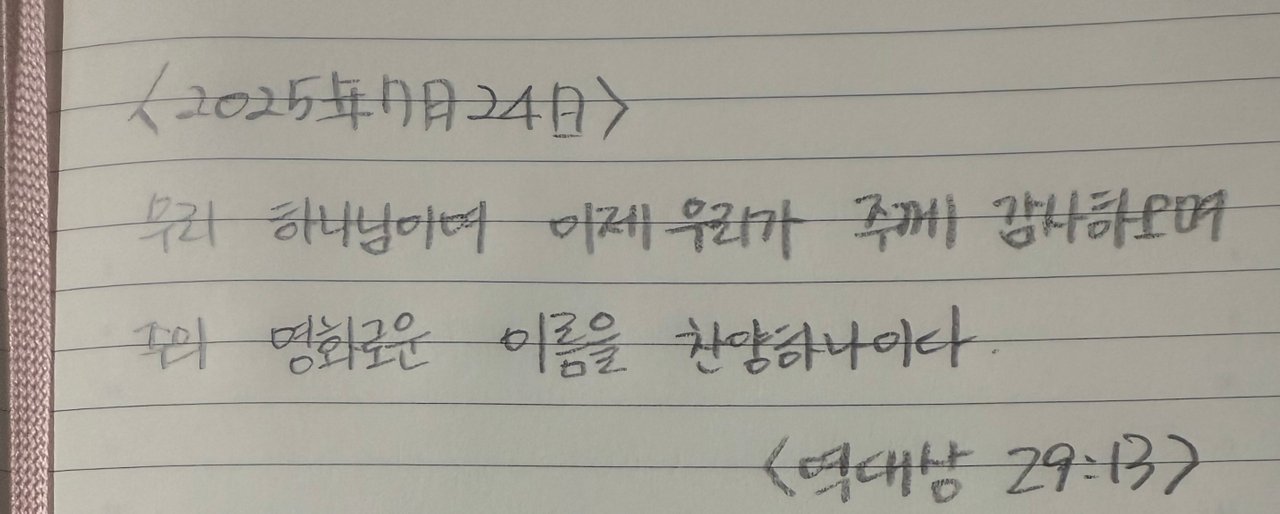 <2025年 7月 24日>
우리 하나님이여 이제 우리가 주께 감사하오며
주의 영화로운 이름을 찬양하나이다.
<역대상 29:13>